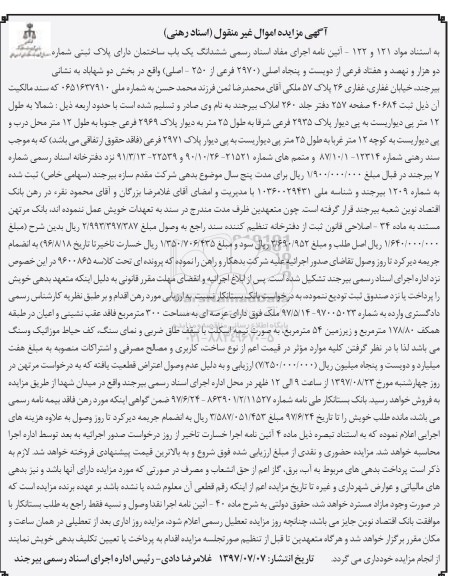 آگهی مزایده اموال غیر منقول (اسناد رهنی)
به استناد مواد ۱۲۱ و ۱۲۲ - آئین نامه اجرای مفاد اسناد رسمی ششدانگ یک باب ساختمان دارای پلاک ثبتی شماره
دو هزار و نهصد و هفتاد فرعی از دویست و پنجاه اصلی (۲۹۷۰ فرعی از ۲۵۰ - اصلی) واقع در بخش دو شهاباد به نشانی
بیرجند، خیابان غفاری، غفاری ۲۶ پلاک ۵۷ ملکی آقای محمدرضا ثمن فرزند محمد حسن به شماره ملی ۰۶۵۱۶۳۷۹۱۰ که سند مالکیت
آن ذیل ثبت ۴۰۶۸۴ صفحه ۲۵۷ دفتر جلد ۲۶۰ املاک بیرجند به نام وی صادر و تسلیم شده است با حدود اربعه ذیل: شمالا به طول
۱۲ متر پی دیواریست به پی دیوار پلاک ۲۹۳۵ فرعی شرقا به طول ۲۵ متر به دیوار پلاک ۲۹۶۹ فرعی جنوبا به طول ۱۲ متر محل درب و
پی دیواریست به کوچه ۱۲ متر غربا به طول ۲۵ متر پی دیواریست به پی دیوار پلاک ۲۹۷۱ فرعی (فاقد حقوق ارتفاقی می باشد) که به موجب
سند رهنی شماره ۱۲۳۱۴- ۸۷/۱۰/۱ و متمم های شماره ۲۱۵۲۱- ۹۰/۱۰/۲۶ و ۲۲۵۳۹- ۹۱/۳/۱۳ نزد دفترخانه اسناد رسمی شماره
۷ بیرجند در قبال مبلغ ۱/۹۰۰/۰۰۰/۰۰۰ ریال برای مدت پنج سال موضوع بدهی شرکت مقدم سازه بیرجند (سهامی خاص) ثبت شده
به شماره ۱۲۰۹ بیرجند و شناسه ملی ۱۰۳۶۰۰۲۹۴۳۱ با مدیریت و امضای آقای غلامرضا بزرگان و آقای محمود نقره در رهن بانک
اقتصاد نوین شعبه بیرجند قرار گرفته است. چون متعهدین ظرف مدت مندرج در سند به تعهدات خویش عمل ننموده اند، بانک مرتهن
مستند به ماده ۳۴ - اصلاحی قانون ثبت از دفترخانه تنظیم کننده سند راجع به وصول مبلغ ۲/۹۹۳/۳۹۷/۳۸۷ ریال بدین شرح (مبلغ
۱/۶۴۰/۰۰۰/۰۰۰ ریال اصل طلب و مبلغ ۳/۶۹۰/۹۵۲ ریال سود و مبلغ ۱/۳۵۰/۷۰۶/۴۳۵ ریال خسارت تاخیر تا تاریخ ۹۶/۸/۱۸) به انضمام
جریمه دیرکرد تا روز وصول تقاضای صدور اجرائیه علیه شرکت بدهکار و راهن را نموده که پرونده ای تحت کلاسه ۹۶۰۰۸۶۵ در این خصوص
نزد اداره اجرای اسناد رسمی بیرجند تشکیل شده است. پس از ابلاغ اجرائیه و انقضای مهلت مقرر قانونی به دلیل اینکه متعهد بدهی خویش
را پرداخت یا نزد صندوق ثبت تودیع ننموده، به درخواست بانک بستانکار نسبت به ارزیابی مورد رهن اقدام و بر طبق نظریه کارشناس رسمی
دادگستری وارده به شماره ۹۷۰۰۵۰۲۳- ۹۷/۵/۱۴ ملک فوق دارای عرصه ای به مساحت ۳۰۰ مترمربع فاقد عقب نشینی و اعیان در طبقه
همکف ۱۷۸/۸۰ مترمربع و زیرزمین ۵۴ مترمربع، به صورت نیمه اسکلت با سقف طاق ضربی و نمای سنگ، کف حیاط موزائیک وسنگ
می باشد لذا با در نظر گرفتن کلیه موارد مؤثر در قیمت اعم از نوع ساخت، کاربری و مصالح مصرفی و اشتراکات منصوبه به مبلغ هفت
میلیارد و دویست و پنجاه میلیون ریال (۷/۲۵۰/۰۰۰/۰۰۰) ارزیابی و به دلیل عدم وصول اعتراض قطعیت یافته که به درخواست مرتهن در
روز چهارشنبه مورخ ۱۳۹۷/۰۸/۲۳ از ساعت ۹ الی ۱۲ ظهر در محل اداره اجرای اسناد رسمی بیرجند واقع در میدان شهدا از طریق مزایده
به فروش خواهد رسید. بانک بستانکار طی نامه شماره ۸۶۳۹۰۱/۲/۱۱۵۲۷- ۹۷/۶/۲۴ ضمن گواهی اینکه مورد رهن فاقد بیمه نامه رسمی
می باشد، مانده طلب خویش را تا تاریخ ۹۷/۶/۲۴ مبلغ ۳/۵۸۷/۰۵۱/۴۵۳ ریال به انضمام جریمه دیرکرد تا روز وصول به علاوه هزینه های
اجرایی اعلام نموده که به استناد تبصره ذیل ماده ۴ آئین نامه اجرا خسارت تاخیر از روز درخواست صدور اجرائیه به بعد توسط اداره اجرا
محاسبه خواهد شد. مزایده حضوری و نقدی از مبلغ ارزیابی شده فوق شروع و به بالاترین قیمت پیشنهادی فروخته خواهد شد. لازم به
ذکر است پرداخت بدهی های مربوط به آب، برق، گاز اعم از حق انشعاب و مصرف در صورتی که مورد مزایده دارای آنها باشد و نیز بدهی
های مالیاتی و عوارض شهرداری و غیره تا تاریخ مزایده اعم از اینکه رقم قطعی آن معلوم شده یا نشده باشد بر عهده برنده مزایده است که
در صورت وجود مازاد مسترد خواهد شد، حقوق دولتی به شرح ماده ۴۰ - آئین نامه اجرا نقدا وصول و نسیه فقط راجع به طلب بستانکار با
موافقت بانک اقتصاد نوین جایز می باشد، چنانچه روز مزایده تعطیل رسمی اعلام شود، مزایده روز اداری بعد از تعطیلی در همان ساعت و
مکان مقرر برگزار خواهد شد و هرگاه متعهدین تا قبل از تنظیم صورتجلسه مزایده اقدام به پرداخت یا تعیین تکلیف بدهی خویش نمایند
از انجام مزایده خودداری می گردد. تاریخ انتشار: ۱۳۹۷/۰۷/۰۷ غلامرضا دادی- رئیس اداره اجرای اسناد رسمی بیرجند